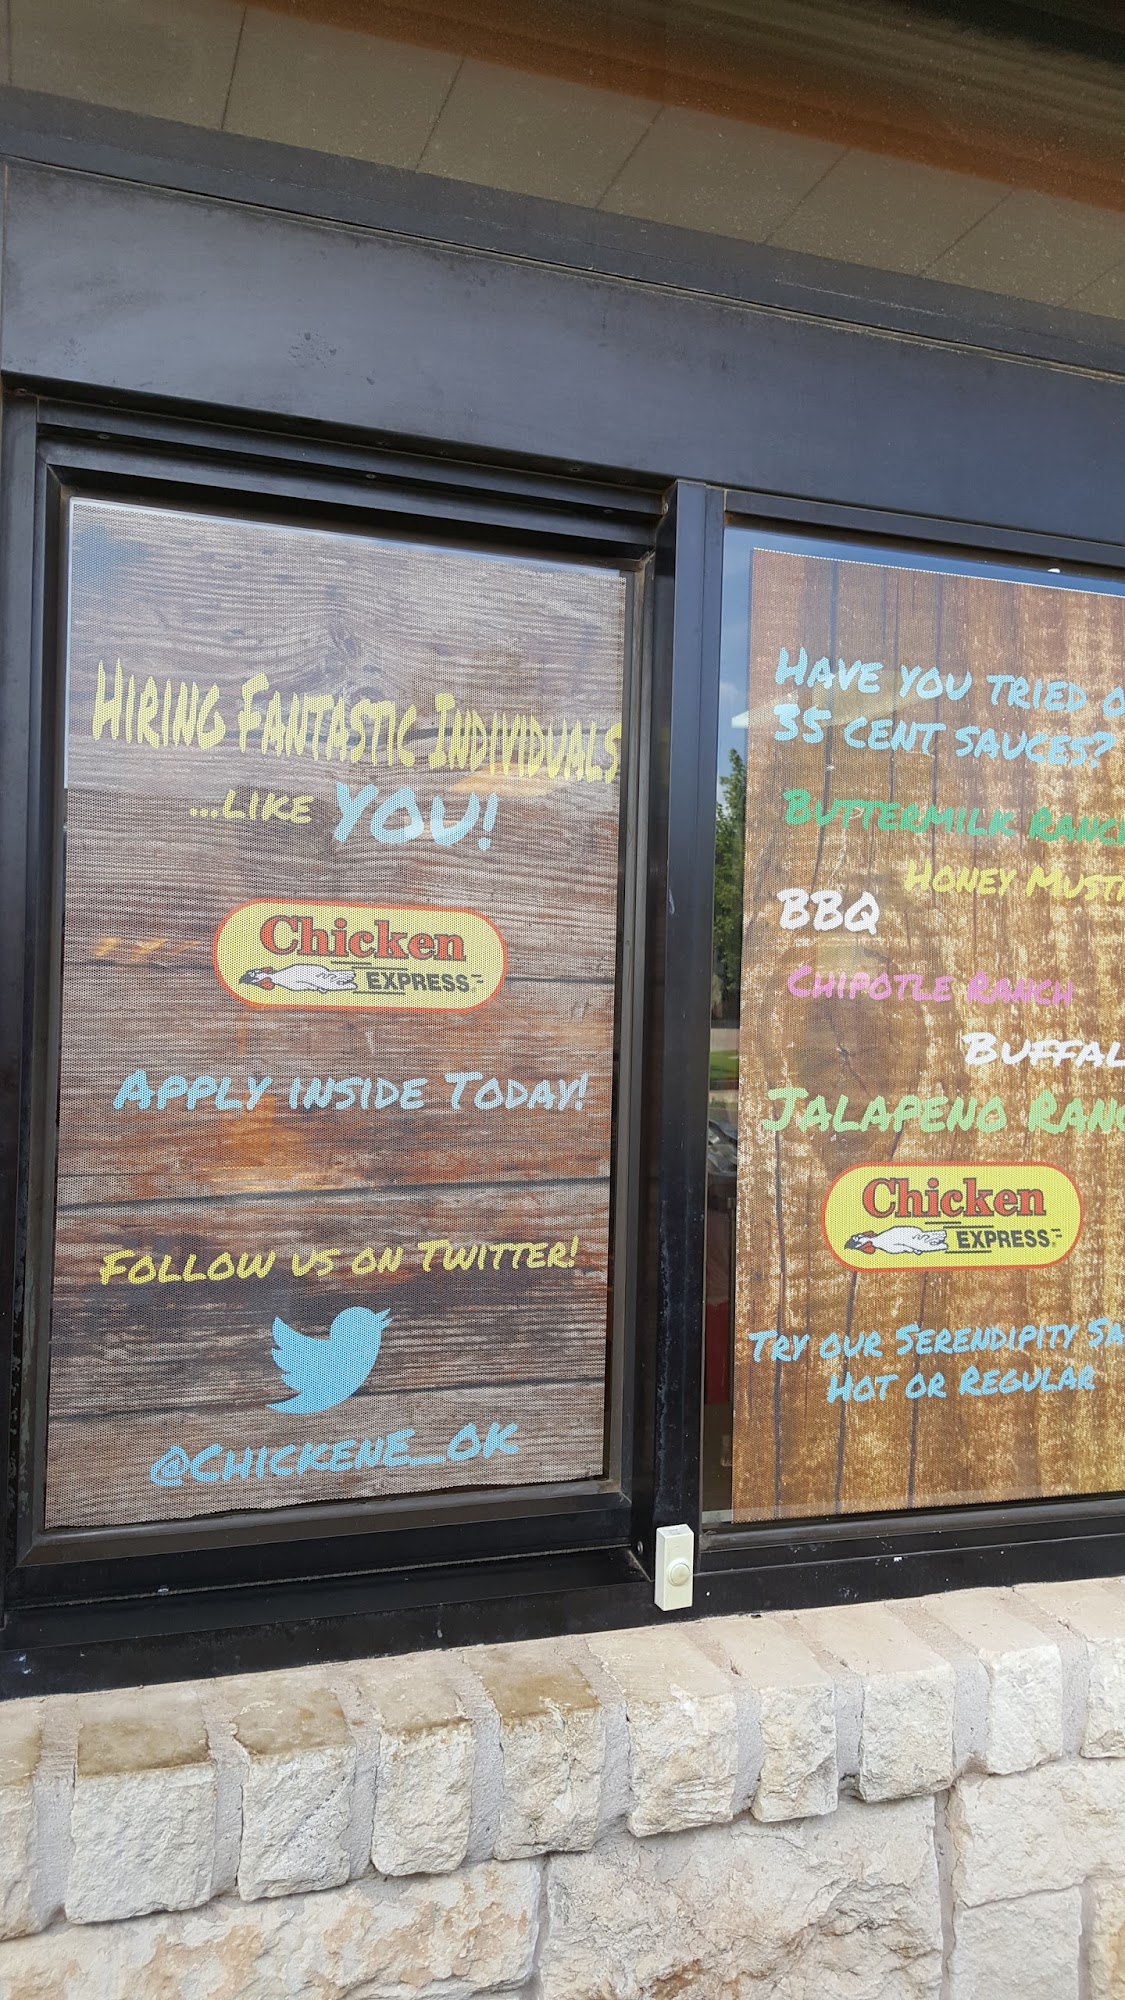 Hiring Fantastic Individuals
...like YOU!
Chicken
EXPRESS
Apply inside Today!
Follow us on Twitter!
@ChickenE_OK
Have you tried
35 cent sauces?
Buttermilk Ranch
Honey
BBQ
Chipotle Ranch
Jalapeno
Chicken
EXPRESS
Try our Serendipity
Hot or Regular